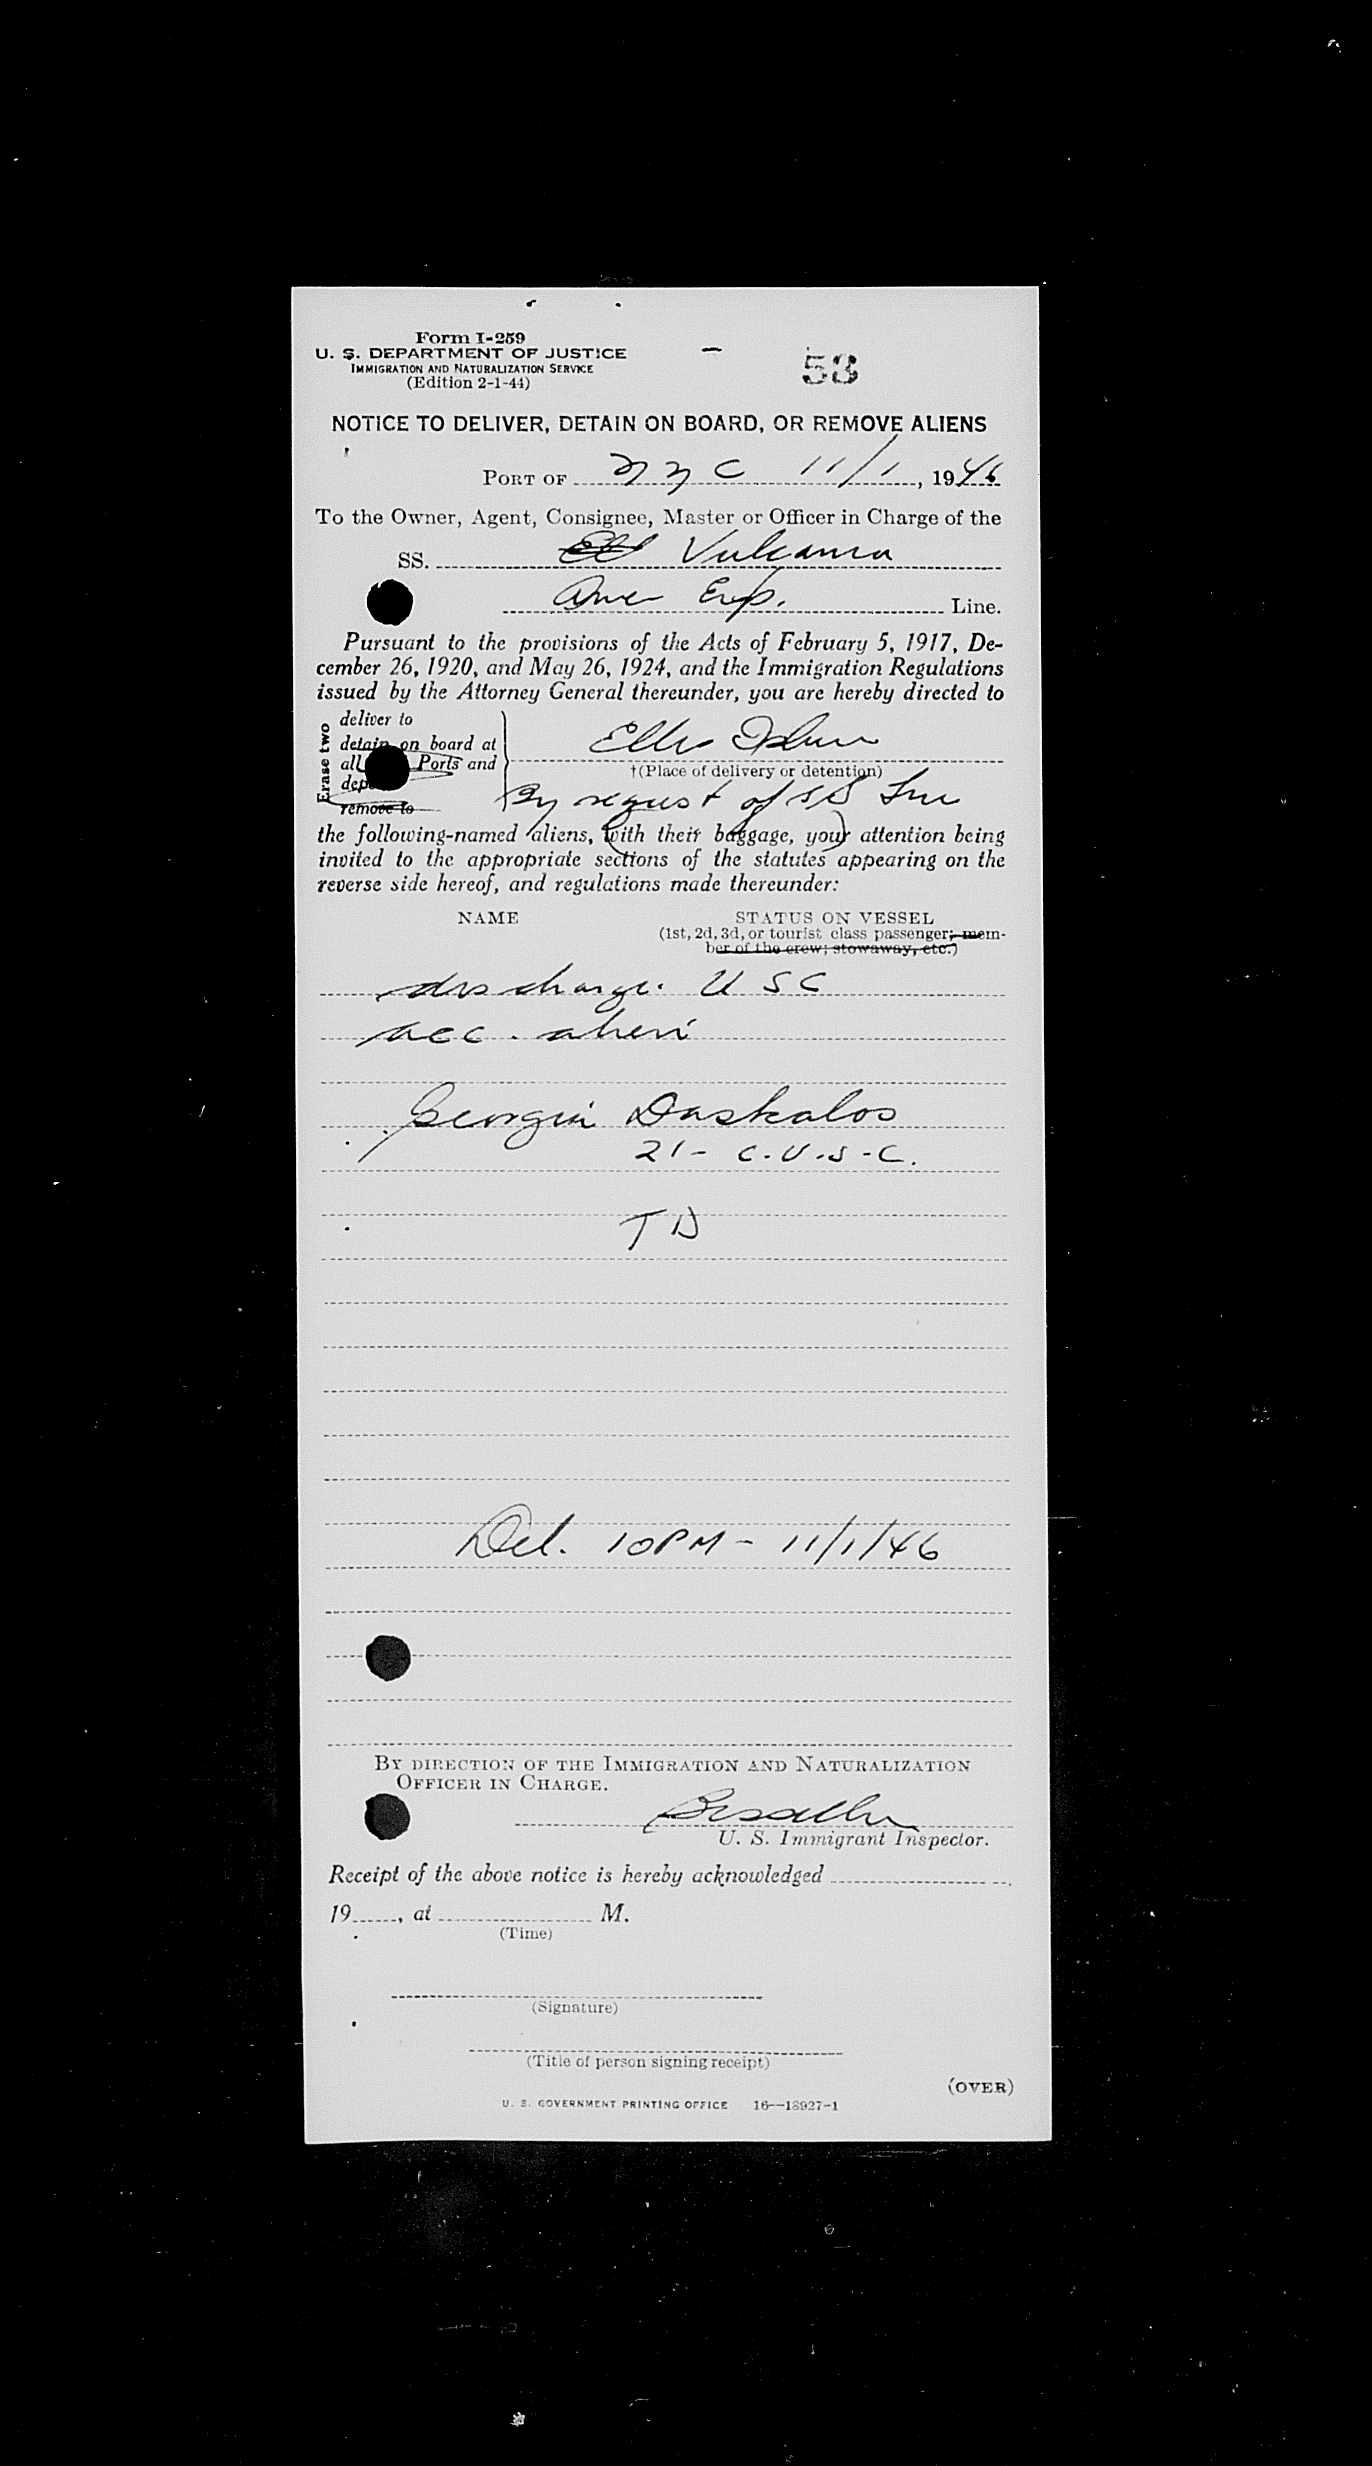 Form I-259
U. S. DEPARTMENT OF JUSTICE
IMMIGRATION AND NATURALIZATION SERVICE
(Edition 2-1-44)
53
NOTICE TO DELIVER, DETAIN ON BOARD, OR REMOVE ALIENS
PORT OF NYC 11/1, 1946
To the Owner, Agent, Consignee, Master or Officer in Charge of the
SS. Vulcania
Amer Exp. Line.
Pursuant to the provisions of the Acts of February 5, 1917, De-
cember 26, 1920, and May 26, 1924, and the Immigration Regulations
issued by the Attorney General thereunder, you are hereby directed to
Erase two
deliver to
detain on board at
all Ports and
remove to
Ellis Island
†(Place of delivery or detention)
By request of SS Line
the following-named aliens, (with their baggage, your) attention being
invited to the appropriate sections of the statutes appearing on the
reverse side hereof, and regulations made thereunder:
NAME STATUS ON VESSEL
(1st, 2d, 3d, or tourist class passenger; mem-
ber of the crew; stowaway, etc.)
discharge. USC
acc. alien
Georgia Daskalos
21- C.U.S.C.
TD
Del. 10PM - 11/1/46
BY DIRECTION OF THE IMMIGRATION AND NATURALIZATION
OFFICER IN CHARGE.
U. S. Immigrant Inspector.
Receipt of the above notice is hereby acknowledged
19 , at M.
(Time)
(Signature)
(Title of person signing receipt)
(OVER)
U. S. GOVERNMENT PRINTING OFFICE 16—18927-1